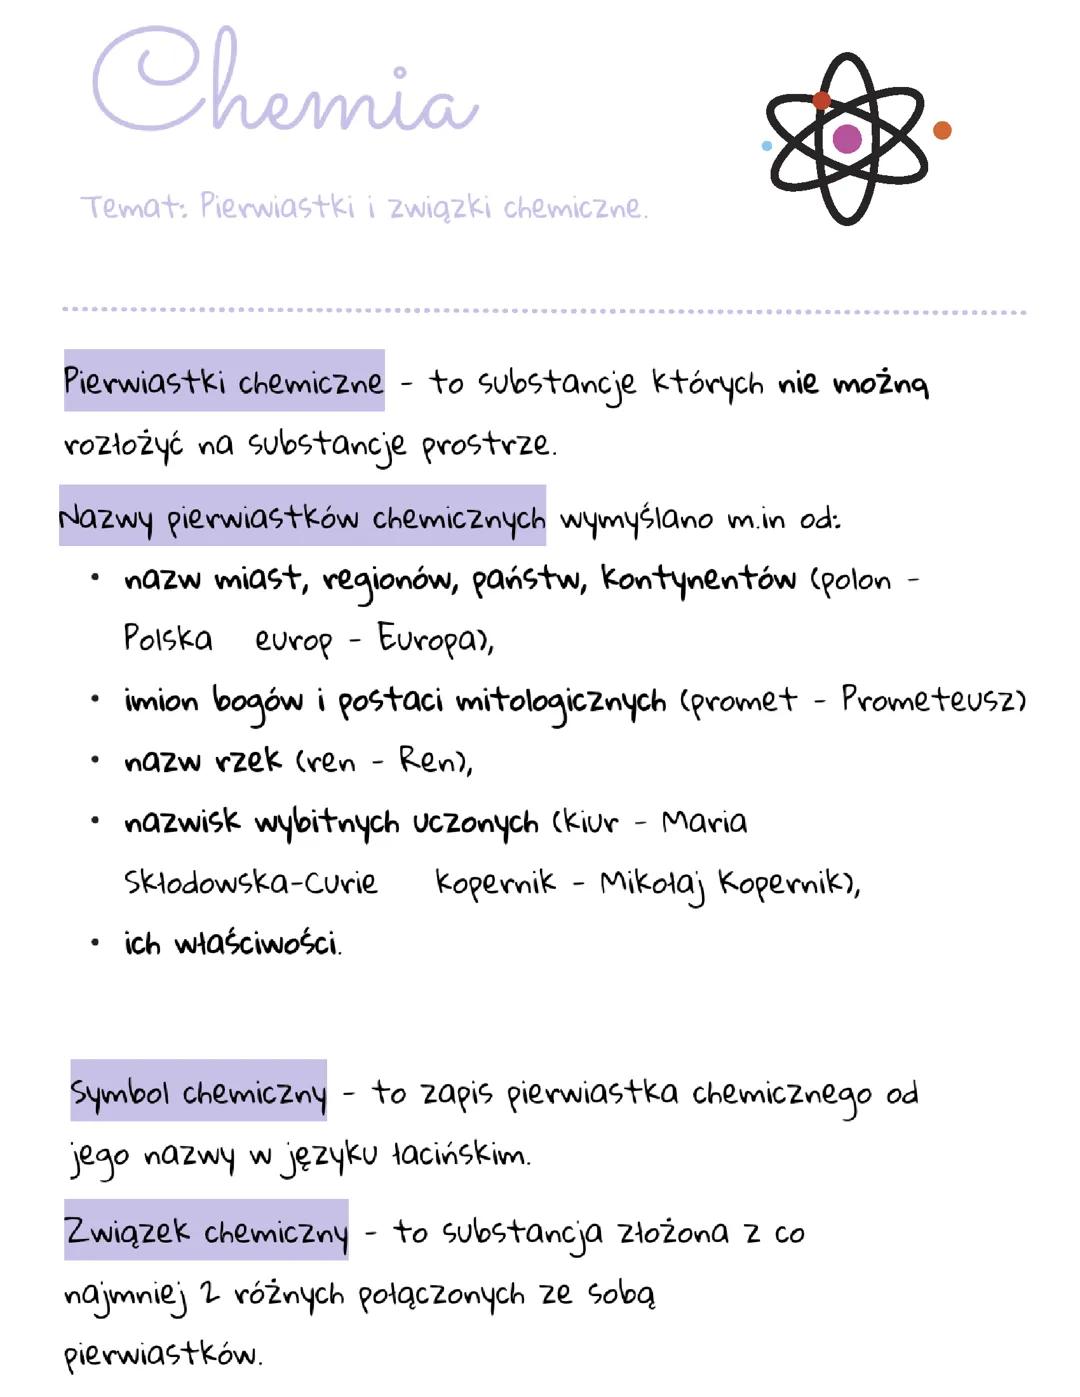 Chemia
Temat: Pierwiastki i związki chemiczne.
Pierwiastki chemiczne - to substancje których nie możną
rozłożyć na substancje prostrze.
Nazwy pierwiastków chemicznych wymyślano m.in od:
• nazw miast, regionów, państw, kontynentów (polon -
Polska europ - Europa),
• imion bogów i postaci mitologicznych (promet - Prometeusz)
• nazw rzek (ren - Ren),
• nazwisk wybitnych uczonych (kiur - Maria
Skłodowska-Curie kopernik - Mikołaj Kopernik),
• ich właściwości.
Symbol chemiczny - to zapis pierwiastka chemicznego od
jego nazwy w języku łacińskim.
Związek chemiczny - to substancja złożona z co
najmniej 2 różnych połączonych ze sobą
pierwiastków.